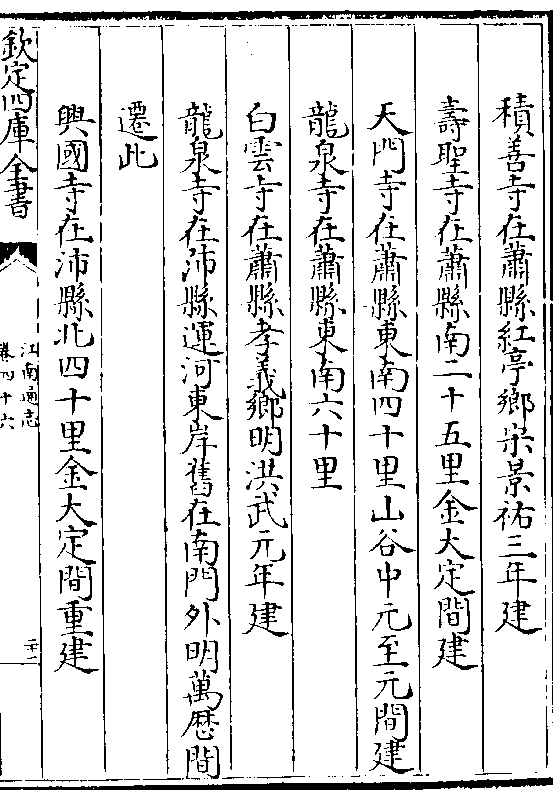 積善寺在蕭縣紅亭鄉宋景祐三年建
壽聖寺在蕭縣南二十五里金大定間建
天門寺在蕭縣東南四十里山谷中元至元間建
龍泉寺在蕭縣東南六十里
白雲寺在蕭縣孝義鄉明洪武元年建
龍泉寺在沛縣運河東岸舊在南門外明萬歷間
遷此
興國寺在沛縣北四十里金大定間重建
欽定四庫全書
江南通志
卷四十六